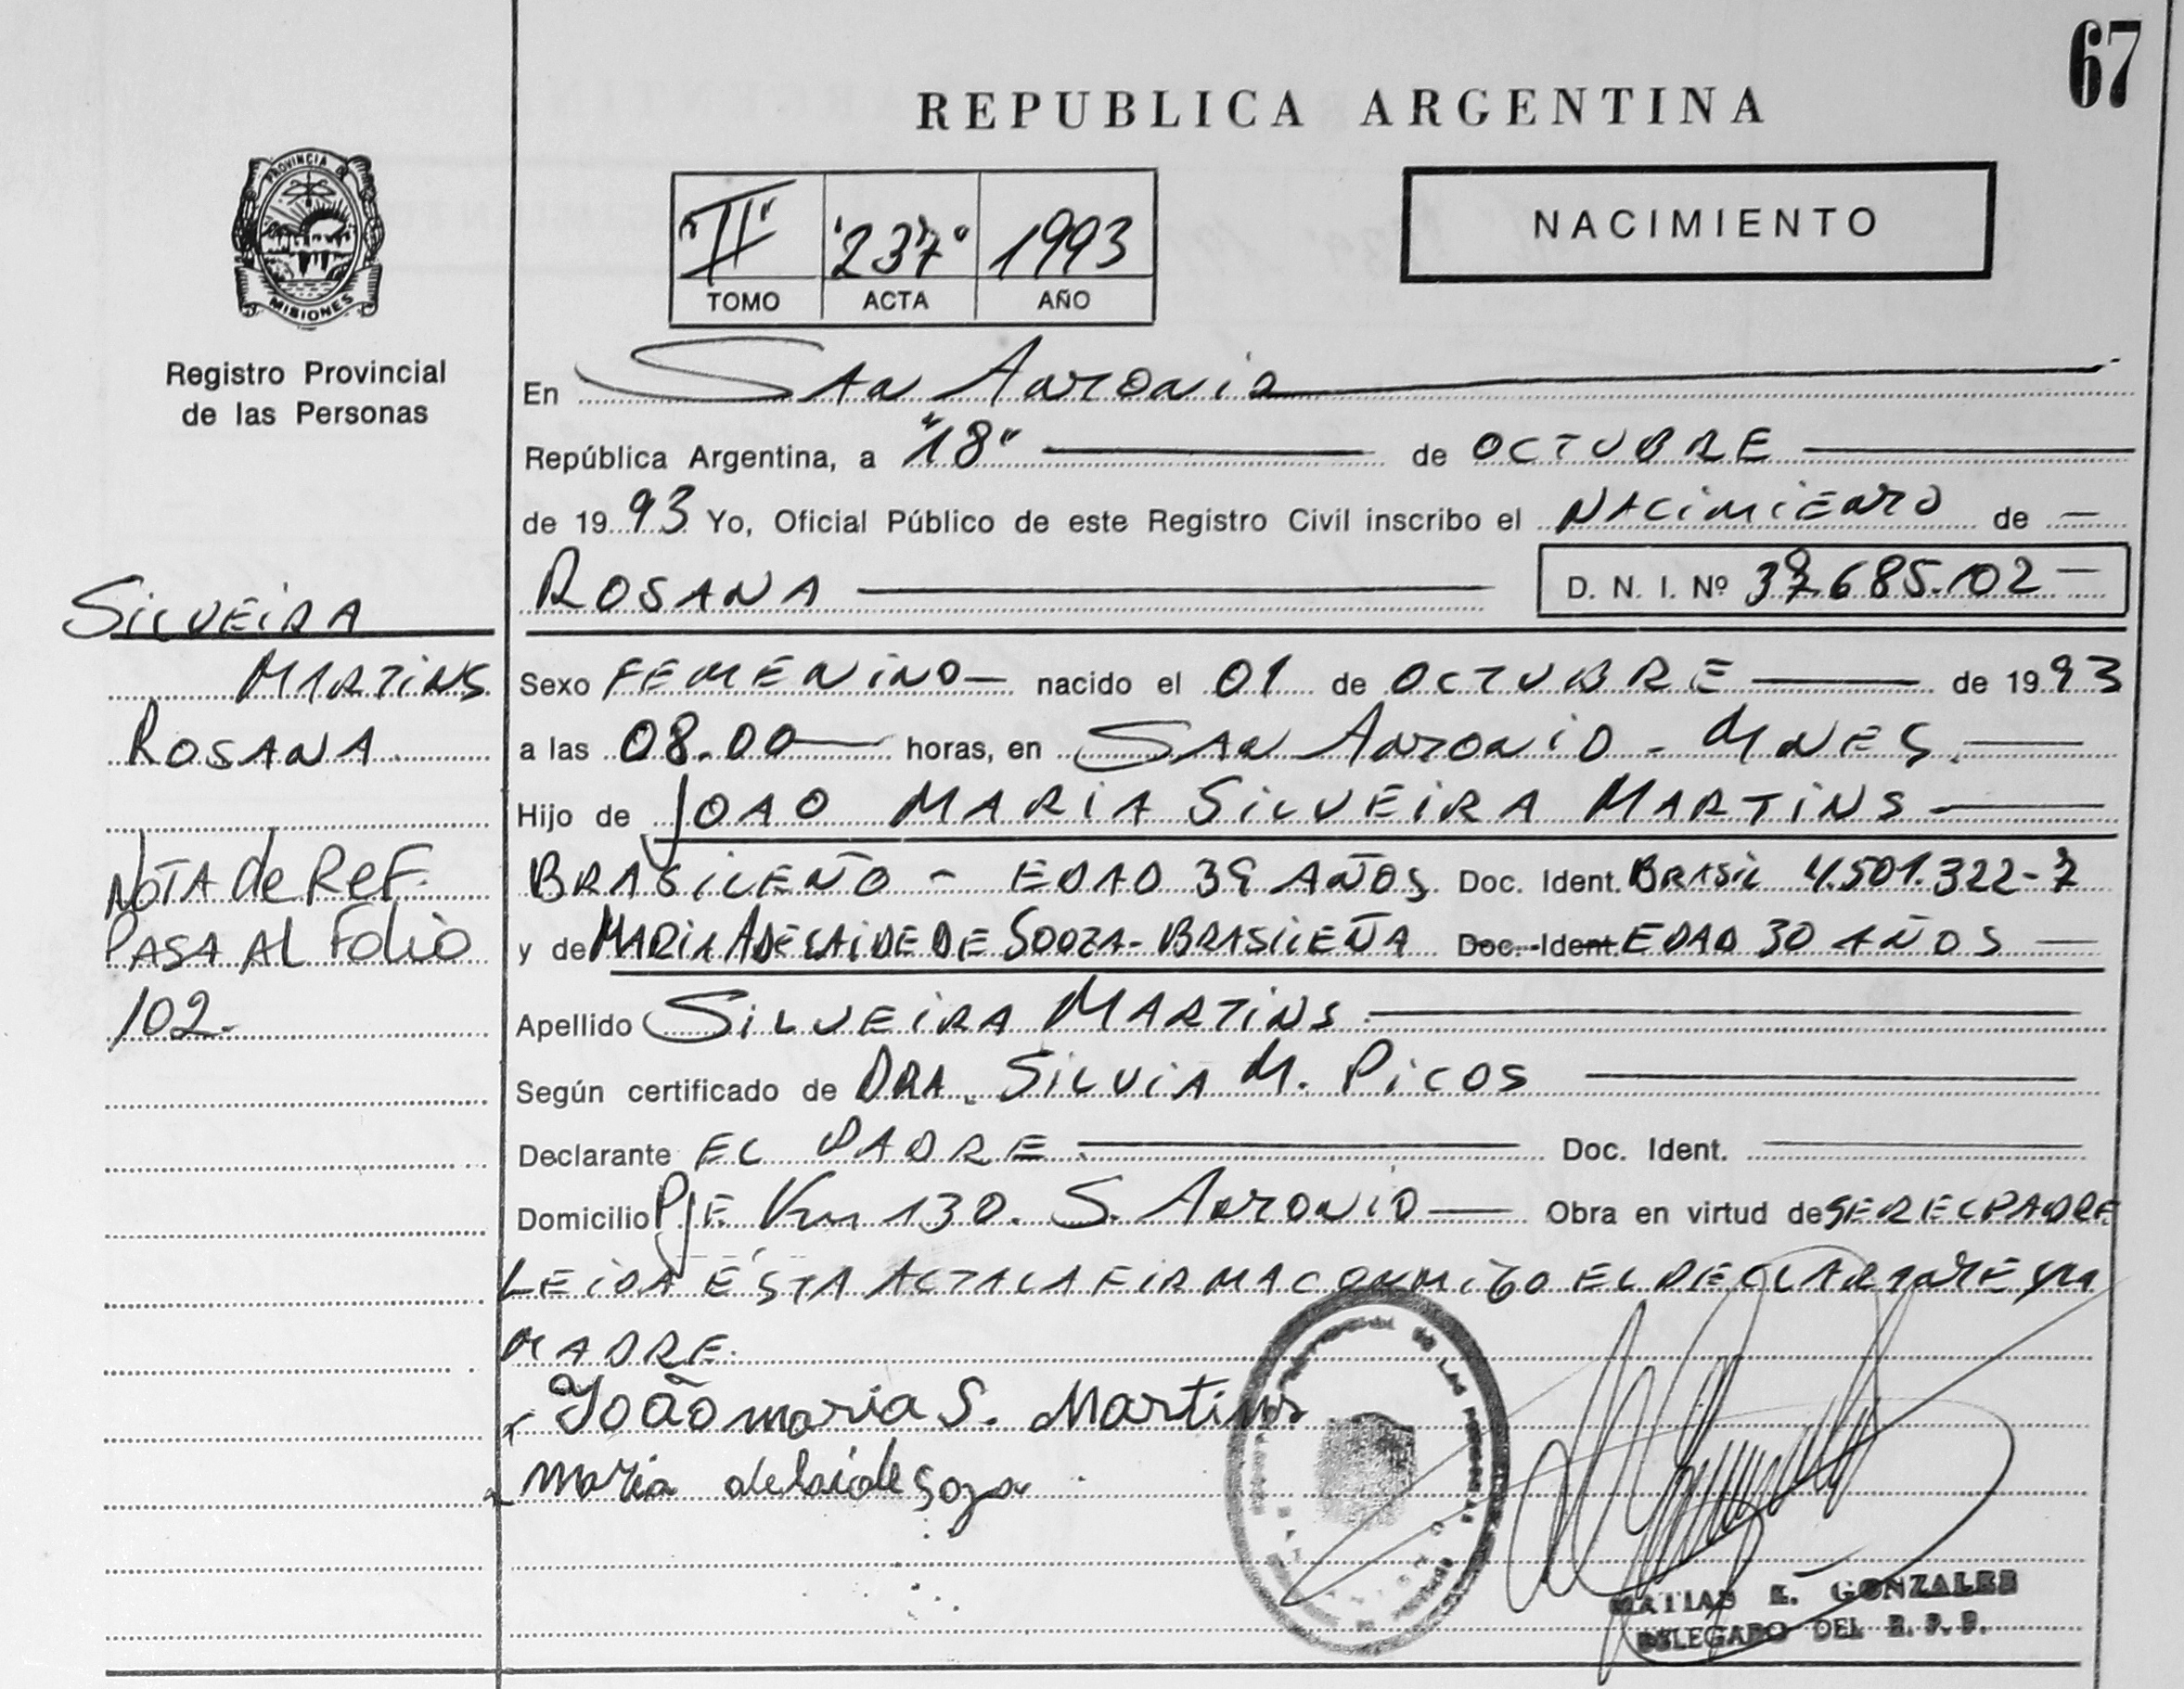 67
REPUBLICA ARGENTINA
PROVINCIA DE
MISIONES
Registro Provincial
de las Personas
"II" "237" 1993
TOMO ACTA AÑO
NACIMIENTO
En San Antonio
República Argentina, a "18" de OCTUBRE
de 1993 Yo, Oficial Público de este Registro Civil inscribo el NACIMIENTO de —
ROSANA D. N. I. Nº 685.102 —
SILVEIRA
MARTINS
ROSANA
NOTA de REF.
PASA AL Folio
102.
Sexo FEMENINO — nacido el 01 de OCTUBRE de 1993
a las 08.00 horas, en SAN ANTONIO - MNES.
Hijo de JOAO MARIA SILVEIRA MARTINS —
BRASILEÑO - EDAD 39 AÑOS Doc. Ident. BRASIL 4.501.322-7
y de MARIA ADELAIDE DE SOOZA - BRASILEÑA Doc. Ident. EDAD 30 AÑOS —
Apellido SILVEIRA MARTINS
Según certificado de DRA. SILVIA M. PICOS
Declarante EL PADRE Doc. Ident.
Domicilio PJE Km 130. S. ANTONIO — Obra en virtud de SER EL PADRE
LEIDA ESTA ACTA LA FIRMA CONMIGO EL DECLARANTE y la
MADRE.
x João maria S. Martins
x maria delaide Soza
MATIAS E. GONZALES
DELEGADO DEL R. P. P.